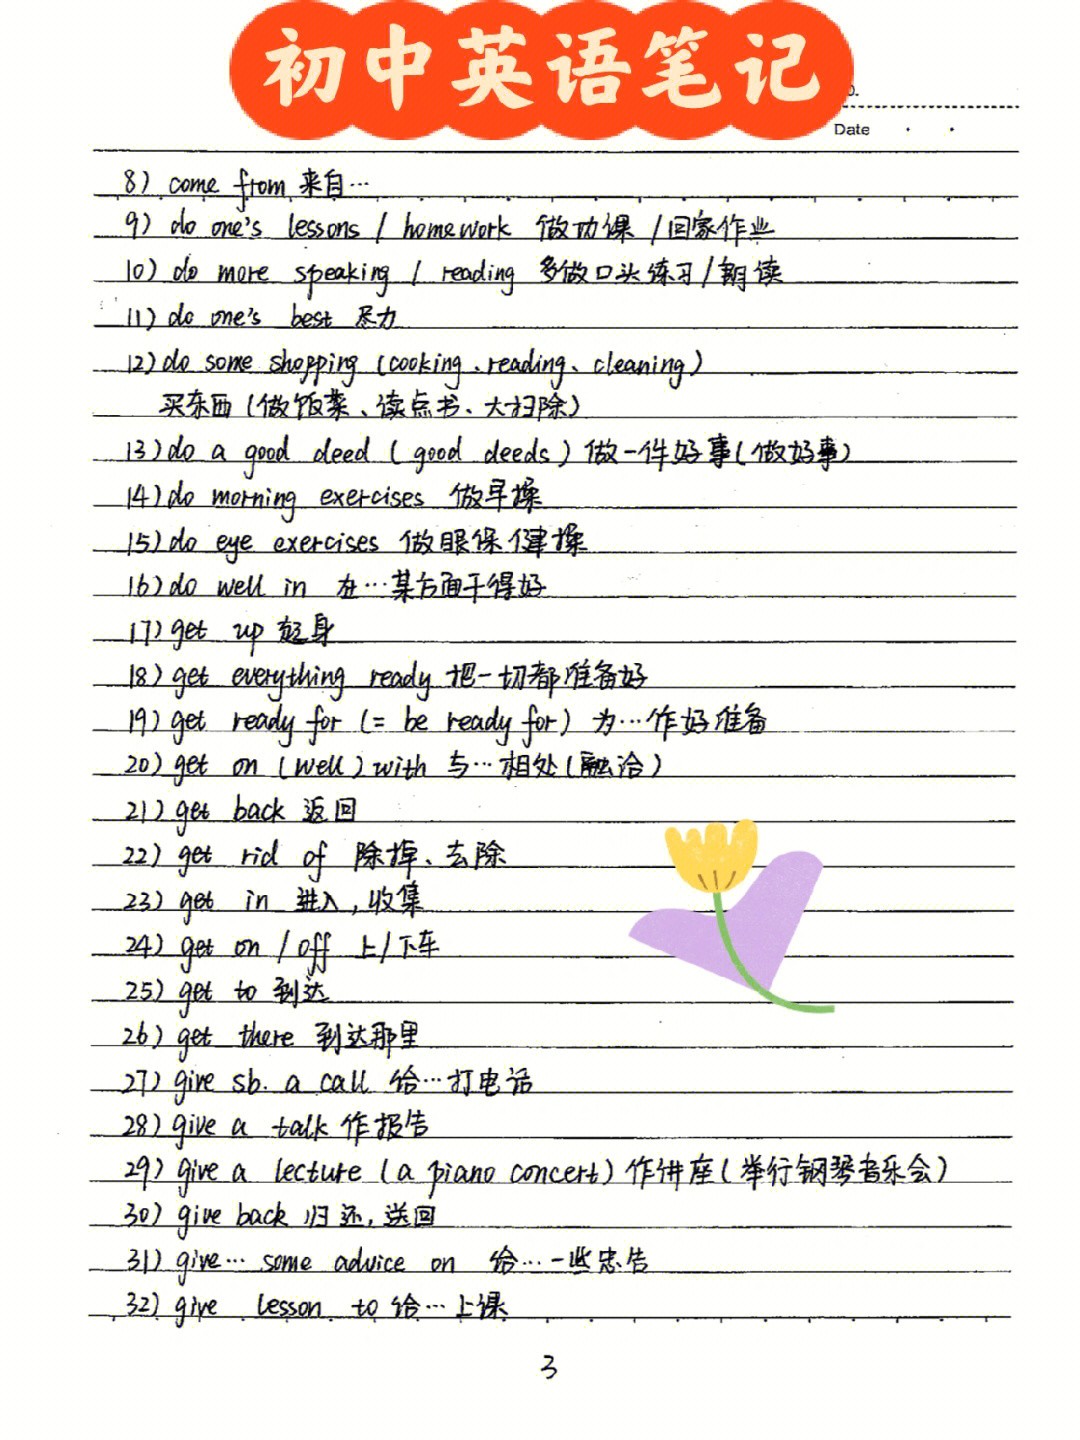 初中英语笔记
Date
8) come from 来自…
9) do one's lessons / homework 做功课 / 回家作业
10) do more speaking / reading 多做口头练习 / 朗读
11) do one's best 尽力
12) do some shopping (cooking、reading、cleaning)
买东西 (做饭菜、读点书、大扫除)
13) do a good deed ( good deeds ) 做一件好事 (做好事)
14) do morning exercises 做早操
15) do eye exercises 做眼保健操
16) do well in 在…某方面干得好
17) get up 起身
18) get everything ready 把一切都准备好
19) get ready for (= be ready for) 为…作好准备
20) get on (well) with 与…相处 (融洽)
21) get back 返回
22) get rid of 除掉、去除
23) get in 进入, 收集
24) get on / off 上/下车
25) get to 到达
26) get there 到达那里
27) give sb. a call 给…打电话
28) give a talk 作报告
29) give a lecture (a piano concert) 作讲座 (举行钢琴音乐会)
30) give back 归还, 送回
31) give… some advice on 给…一些忠告
32) give lesson to 给…上课
3